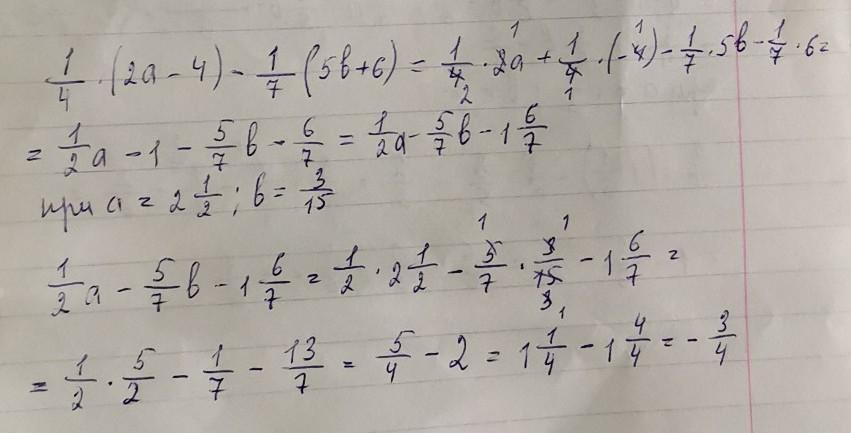 1/4 · (2a - 4) - 1/7 (5b + 6) = 1/4 · 2a + 1/4 · (-4) - 1/7 · 5b - 1/7 · 6 =
= 1/2 a - 1 - 5/7 b - 6/7 = 1/2 a - 5/7 b - 1 6/7
при a = 2 1/2 ; b = 3/15
1/2 a - 5/7 b - 1 6/7 = 1/2 · 2 1/2 - 5/7 · 3/15 - 1 6/7 =
= 1/2 · 5/2 - 1/7 - 13/7 = 5/4 - 2 = 1 1/4 - 1 4/4 = - 3/4